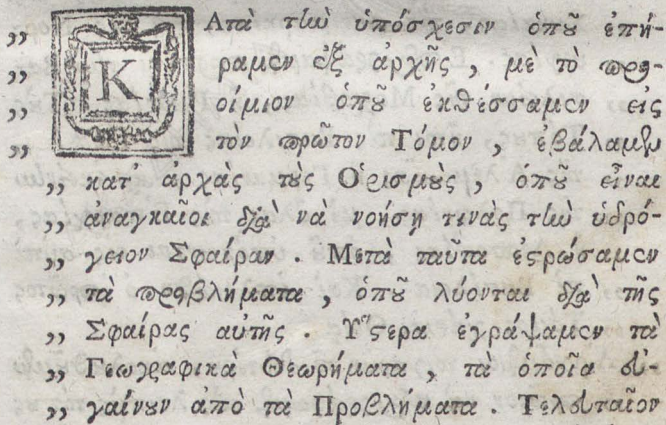 „ Κατὰ τὴν ὑπόσχεσιν ὁποῦ ἐπή-
„ ραμεν ἐξ ἀρχῆς, μὲ τὸ προ-
„ οίμιον ὁποῦ ἐκθέσσαμεν εἰς
„ τὸν πρῶτον Τόμον, ἐβάλαμεν
„ κατ' ἀρχὰς τοὺς Ὁρισμοὺς, ὁποῦ εἶναι
„ ἀναγκαῖοι διὰ νὰ νοήσῃ τινὰς τὴν ὑδρό-
„ γειον Σφαίραν. Μετὰ ταῦτα ἐστρώσαμεν
„ τὰ προβλήματα, ὁποῦ λύονται διὰ τῆς
„ Σφαίρας αὐτῆς. Ὕστερα ἐγράψαμεν τὰ
„ Γεωγραφικὰ Θεωρήματα, τὰ ὁποῖα εὐ-
„ γαίνουν ἀπὸ τὰ Προβλήματα. Τελευταῖον